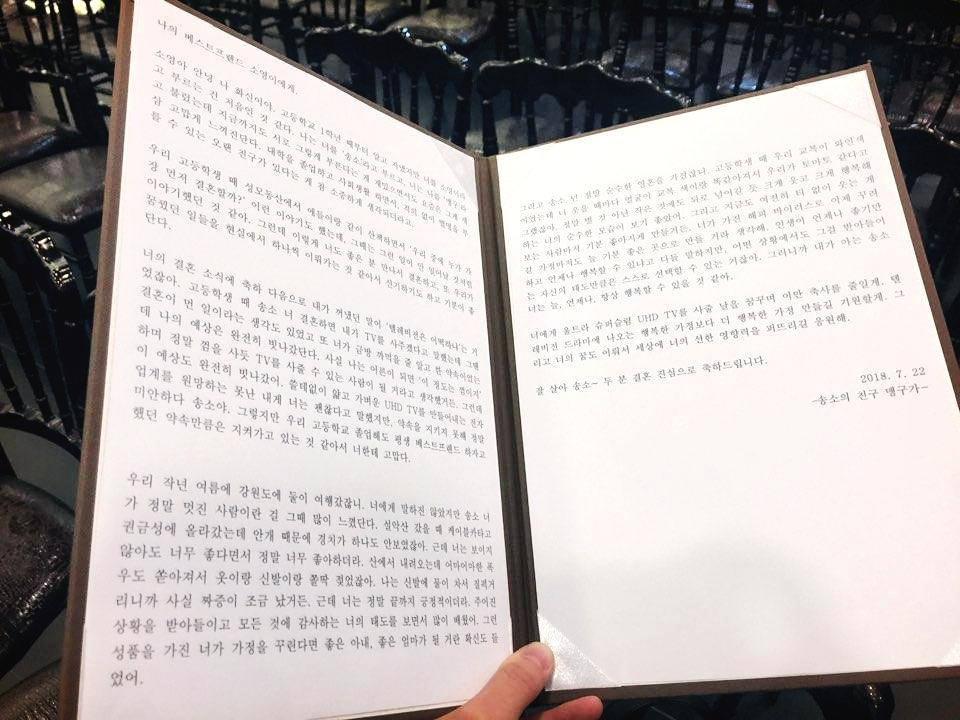 나의 베스트프랜드 소영이에게.
소영아 안녕 나 화신이야. 고등학교 1학년 때부터 알고 지냈지만 너를 소영이라
고 부르는 건 처음인 것 같다. 나는 너를 '송소'라고 부르고 너는 나를 '맹구'라
고 불렀는데 지금까지도 서로 그렇게 부른다는 게 재밌으면서도 요즘은 그게 새
삼 고맙게 느껴진단다. 대학을 졸업하고 사회생활 하면서, 격의 없이 별명을 부
를 수 있는 오랜 친구가 있다는 게 참 소중하게 생각되더라고.
우리 고등학생 때 성모동산에서 애들이랑 같이 산책하면서 '우리 중에 누가 가
장 먼저 결혼할까?' 이런 이야기도 했는데, 그때는 그런 일이 안 일어날 것처럼
이야기했던 것 같아. 그런데 이렇게 너도 좋은 분 만나서 결혼하고, 또 우리가
꿈꿨던 일들을 현실에서 하나씩 이뤄가는 것 같아서 신기하기도 하고 기분이 좋
단다.
너의 결혼 소식에 축하 다음으로 내가 꺼냈던 말이 '텔레비전은 어떡하나'는 거
였잖아. 고등학생 때 송소 너 결혼하면 내가 TV를 사주겠다고 말했는데 그땐
결혼이 먼 일이라는 생각도 있었고 또 너가 금방 까먹을 줄 알고 한 약속이었는
데 나의 예상은 완전히 빗나갔단다. 사실 나는 어른이 되면 '이 정도는 껌이지'
하며 정말 껌을 사듯 TV를 사줄 수 있는 사람이 될 거라고 생각했거든. 그런데
이 예상도 완전히 빗나갔어. 쓸데없이 얇고 가벼운 UHD TV를 만들어내는 전자
업계를 원망하는 못난 내게 너는 괜찮다고 말했지만, 약속을 지키지 못해 정말
미안하다 송소야. 그렇지만 우리 고등학교 졸업해도 평생 베스트프랜드 하자고
했던 약속만큼은 지켜가고 있는 것 같아서 너한테 고맙다.
우리 작년 여름에 강원도에 둘이 여행갔잖니. 너에게 말하진 않았지만 송소 너
가 정말 멋진 사람이란 걸 그때 많이 느꼈단다. 설악산 갔을 때 케이블카타고
권금성에 올라갔는데 안개 때문에 경치가 하나도 안보였잖아. 근데 너는 보이지
않아도 너무 좋다면서 정말 너무 좋아하더라. 산에서 내려오는데 어마어마한 폭
우도 쏟아져서 옷이랑 신발이랑 쫄딱 젖었잖아. 나는 신발에 물이 차서 질척거
리니까 사실 짜증이 조금 났거든. 근데 너는 정말 끝까지 긍정적이더라. 주어진
상황을 받아들이고 모든 것에 감사하는 너의 태도를 보면서 많이 배웠어. 그런
성품을 가진 너가 가정을 꾸린다면 좋은 아내, 좋은 엄마가 될 거란 확신도 들
었어.
그리고 송소, 넌 정말 순수한 영혼을 가졌잖니. 고등학생 때 우리 교복이 와인색
이었는데 너 웃을 때마다 얼굴이 교복 색이랑 똑같아져서 우리가 토마토 같다고
그랬잖아. 정말 별 것 아닌 작은 것에도 뒤로 넘어갈 듯 크게 웃고 크게 행복해
하는 너의 순수한 모습이 보기 좋았어. 그리고 지금도 여전히 티 없이 웃는 게
보는 사람마저 기분 좋아지게 만들거든. 너가 가진 해피 바이러스로 이제 꾸려
갈 가정마저도 늘 기분 좋은 곳으로 만들 거라 생각해. 인생이 언제나 좋기만
하고 언제나 행복할 수 있냐고 다들 말하지만, 어떤 상황에서도 그걸 받아들이
는 자신의 태도만큼은 스스로 선택할 수 있는 거잖아. 그러니까 내가 아는 송소
너는 늘, 언제나, 항상 행복할 수 있을 것 같아.
너에게 울트라 슈퍼슬림 UHD TV를 사줄 날을 꿈꾸며 이만 축사를 줄일게. 텔
레비전 드라마에 나오는 행복한 가정보다 더 행복한 가정 만들길 기원할게. 그
리고 너의 꿈도 이뤄서 세상에 너의 선한 영향력을 퍼뜨리길 응원해.
잘 살아 송소~ 두 분 결혼 진심으로 축하드립니다.
2018. 7. 22
-송소의 친구 맹구가-